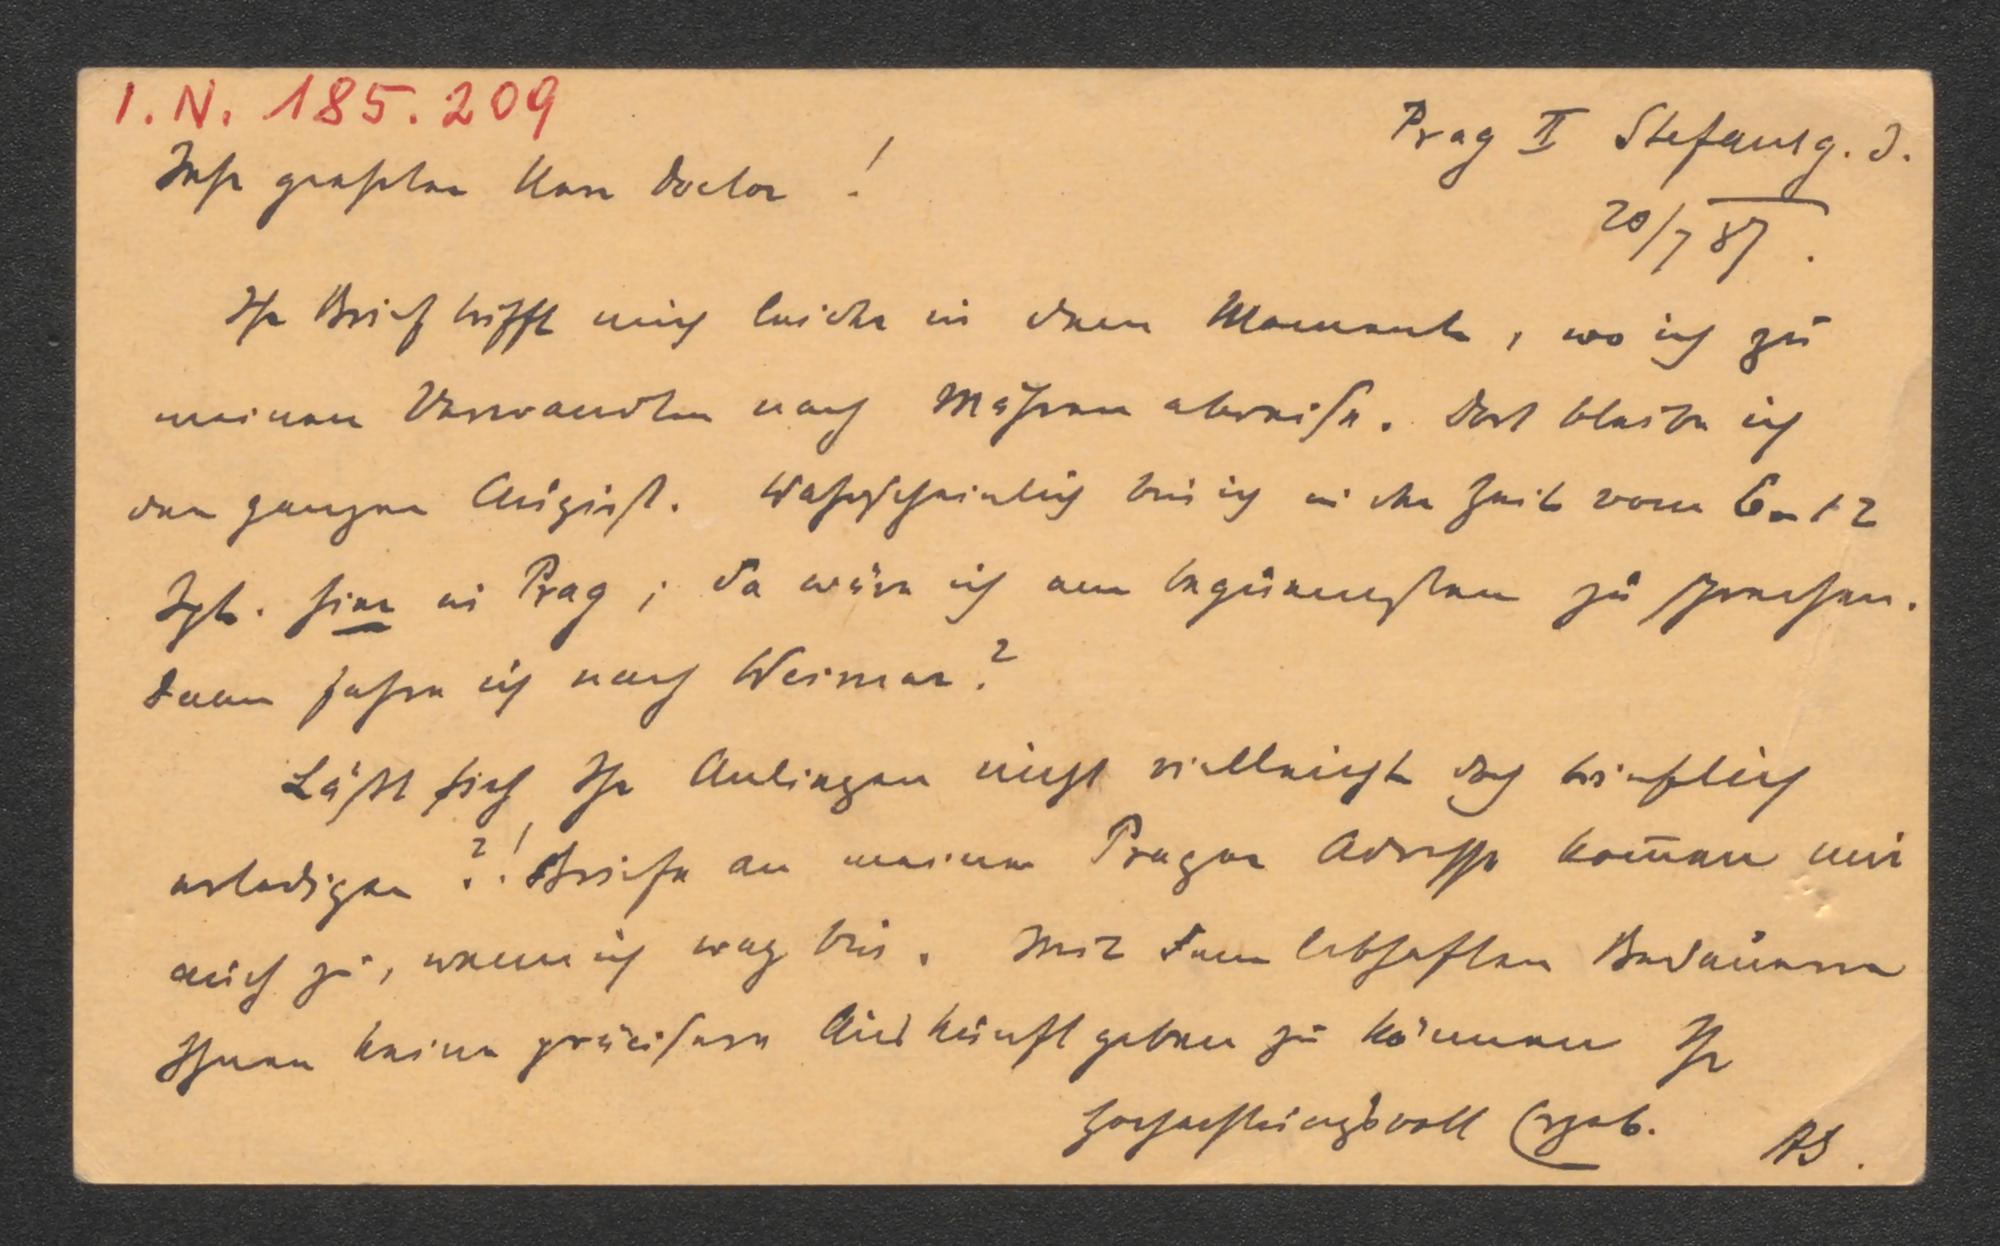 I.N. 185.209
Prag II Stefansg. 3.
Sehr geehrter Herr Doctor!
20/7 87.
Ihr Brief trifft mich leider in dem Momente, wo ich zu
meinen Verwandten nach Mähren abreise. Dort bleibe ich
den ganzen August. Wahrscheinlich bin ich in der Zeit vom 6–12
Spt. hier in Prag; da wäre ich am bequemsten zu sprechen.
Dann fahre ich nach Weimar?
Läßt sich Ihr Anliegen nicht vielleicht doch brieflich
erledigen?! Briefe an meine Prager Adresse kom̄en mir
auch zu, wenn ich weg bin. Mit dem lebhaften Bedauern
Ihnen keine präcisere Auskunft geben zu können Ihr
hochachtungsvoll Ergeb. AS.